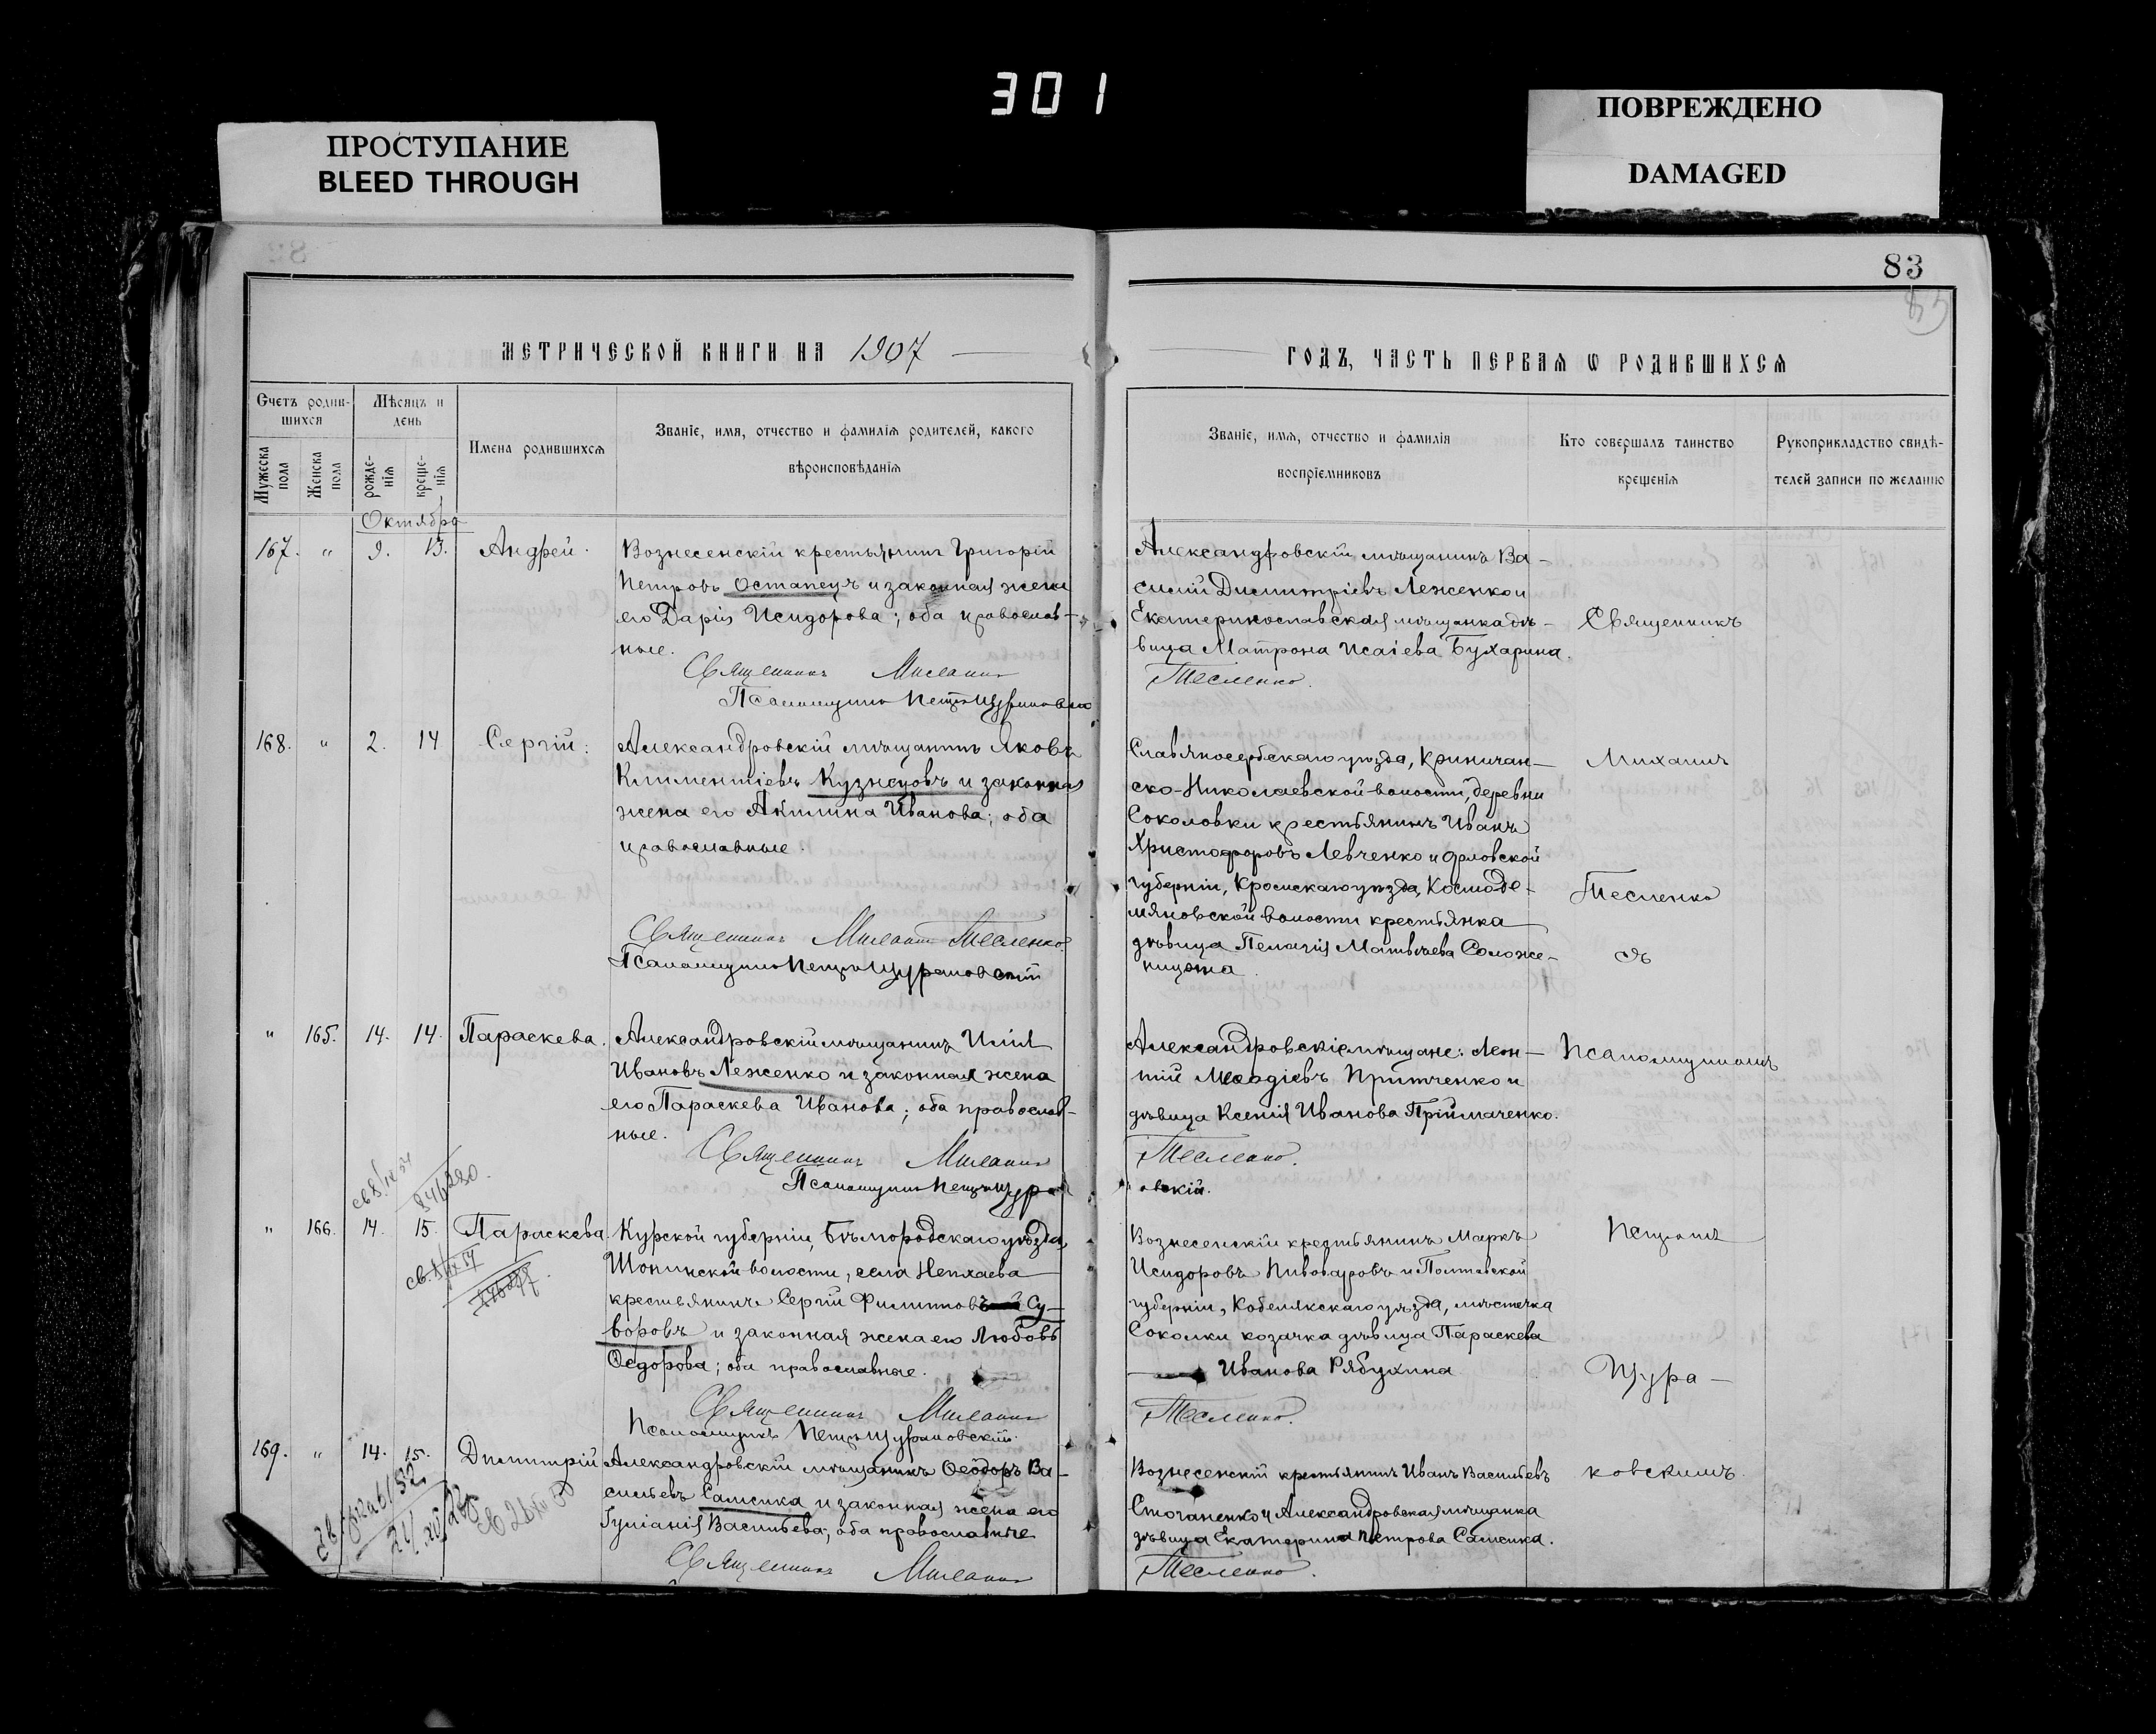 301
ПРОСТУПАНИЕ
BLEED THROUGH
ПОВРЕЖДЕНО
DAMAGED
83
МЕТРИЧЕСКОЙ КНИГИ НА 1907
ГОДЪ, ЧАСТЬ ПЕРВАЯ Ѡ РОДИВШИХСЯ
Счетъ родив-
шихся
Мѣсяцъ и
день
Мужеска
пола
Женска
пола
рожде-
нія
креще-
нія
Имена родившихся
Званіе, имя, отчество и фамилія родителей, какого
вѣроисповѣданія
Званіе, имя, отчество и фамилія
воспріемниковъ
Кто совершалъ таинство
крещенія
Рукоприкладство свидѣ-
телей записи по желанію
Октября
167. " 9. 13. Андрей.
Вознесенскій крестьянинъ Григорій
Петровъ Остапецъ и законная жена
его Дарія Исидорова; оба православ-
ные.
Священникъ Михаилъ
Псаломщикъ Петръ Щурановскій
Александровскій мѣщанинъ Ва-
силій Димитріевъ Леженко и
Екатеринославская мѣщанка дѣ-
вица Матрона Исаіева Бухарина.
Тесленко.
Священникъ
168. " 2. 14 Сергій.
Александровскій мѣщанинъ Яковъ
Климентіевъ Кузнецовъ и законная
жена его Акилина Иванова; оба
православные.
Священникъ Михаилъ Тесленко.
Псаломщикъ Петръ Щурановскій
Славяносербскаго уѣзда, Криничан-
ско-Николаевской волости, деревни
Соколовки крестьянинъ Иванъ
Христофоровъ Левченко и Орловской
губерніи, Кромскаго уѣзда, Космоде-
мяновской волости крестьянка
дѣвица Пелагія Матвѣева Соложе-
ницына.
Михаилъ
Тесленко
съ
" 165. 14. 14. Параскева.
Александровскій мѣщанинъ Илія
Ивановъ Леженко и законная жена
его Параскева Иванова; оба православ-
ные.
Священникъ Михаилъ
Псаломщикъ Петръ Щуран
Александровскіе мѣщане: Леон-
тій Меѳодіевъ Притченко и
дѣвица Ксенія Иванова Пріймаченко.
Тесленко.
овскій.
Псаломщикомъ
" 166. 14. 15. Параскева
Курской губерніи, Бѣлгородскаго уѣзда
Шопинской волости, села Непхаева
крестьянинъ Сергій Филипповъ Су-
воровъ и законная жена его Любовь
Ѳедорова; оба православные.
Священникъ Михаилъ
Псаломщикъ Петръ Щурановскій.
Вознесенскій крестьянинъ Маркъ
Исидоровъ Пивоваровъ и Полтавской
губерніи, Кобелякскаго уѣзда, мѣстечка
Соколки козачка дѣвица Параскева
Иванова Рябухина
Тесленко.
Петромъ
Щура-
169. " 14. 15. Димитрій
Александровскій мѣщанинъ Ѳеодоръ Ва-
сильевъ Самсика и законная жена его
Іуліанія Васильева; оба православные
Священникъ Михаилъ
Вознесенскій крестьянинъ Иванъ Васильевъ
и Александровская мѣщанка
дѣвица Екатерина Петрова Самсика.
Тесленко.
новскимъ.